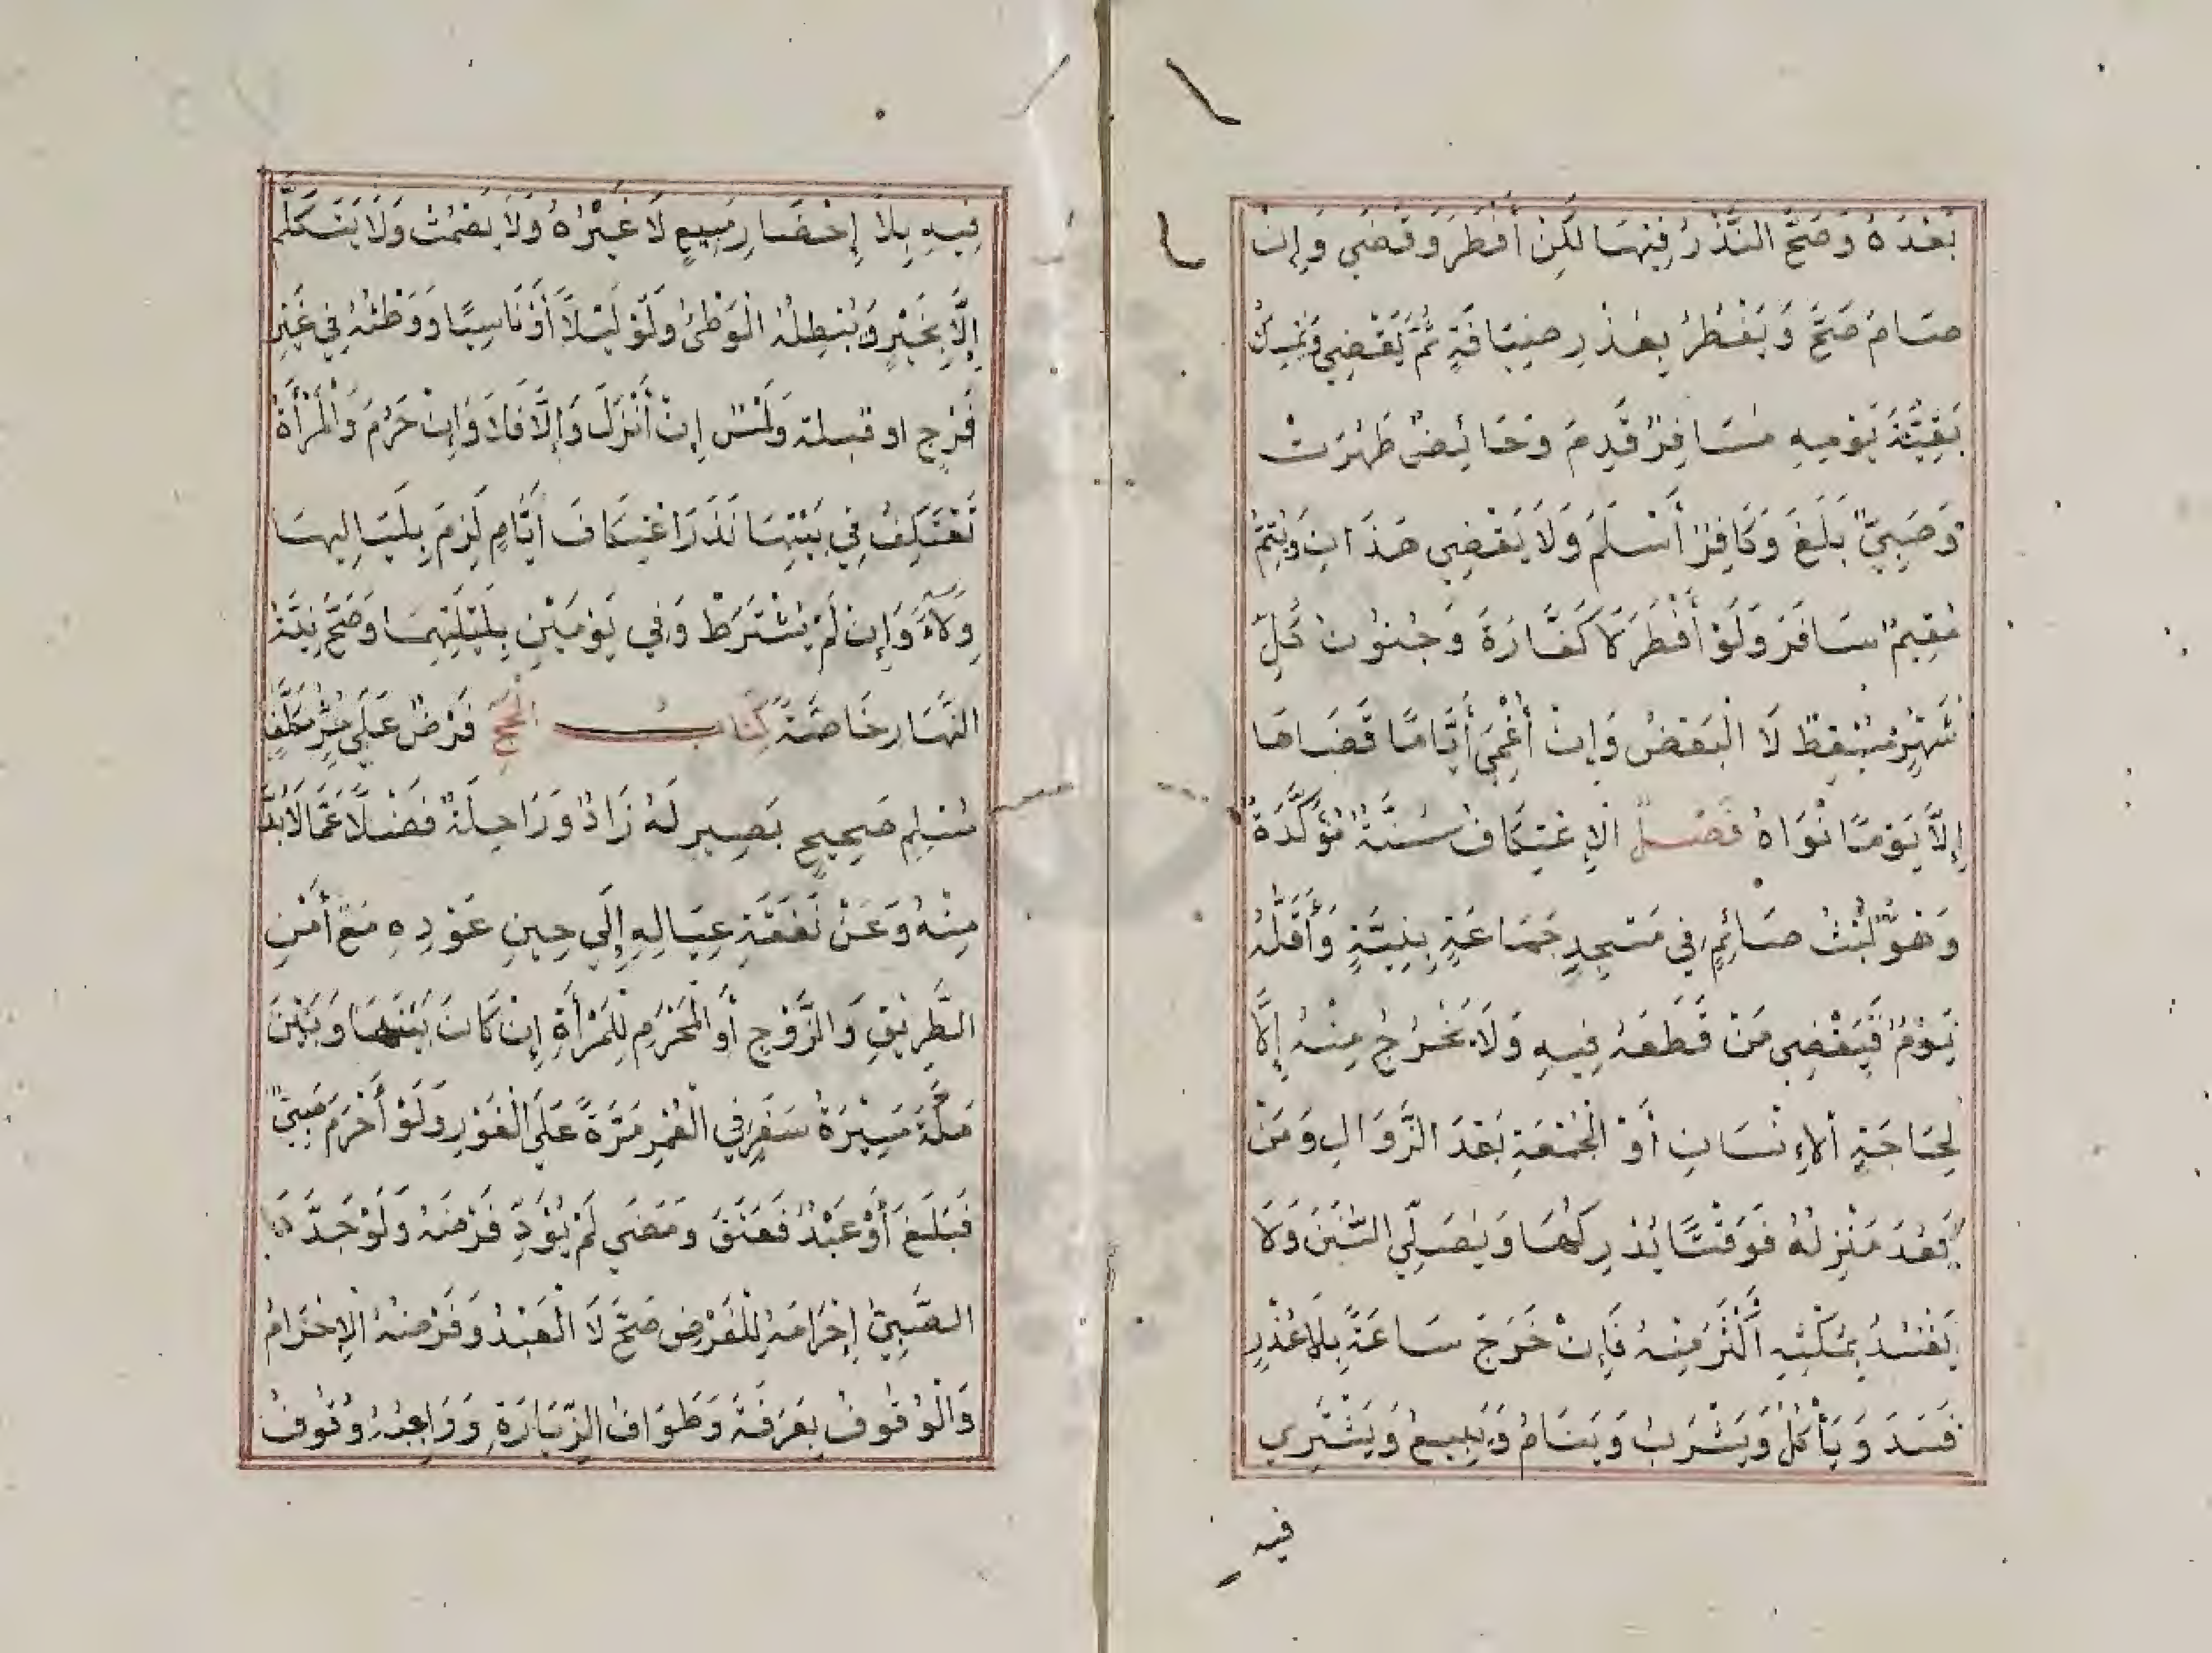 بَعْدَهُ وَصَحَّ النَّذْرُ فِيْهَا لَكِنْ أَفْطَرَ وَقَضَي وَإِنْ
صَامَ صَحَّ وَيُفْطِرُ بِعُذْرِ ضِيَافَةٍ ثُمَّ يَقْضِي وَيُمْسِكُ
بَقِيَّةَ يَوْمِهِ مُسَافِرٌ قَدِمَ وَحَائِضٌ طَهُرَتْ
وَصَبِيٌّ بَلَغَ وَكَافِرٌ أَسْلَمَ وَلَا يَقْضِي هَذَانِ وَيُتِمُّ
مُقِيمٌ سَافَرَ وَلَوْ أَفْطَرَ لَا كَفَّارَةَ وَجُنُونُ كُلِّ
شَهْرٍ مُسْقِطٌ لَا الْبَعْضُ وَإِنْ أُغْمِيَ أَيَّامًا قَضَاهَا
إِلَّا يَوْمًا نَوَاهُ فَصْلٌ الْإِعْتِكَافُ سُنَّةٌ مُؤَكَّدَةٌ
وَهُوَ لُبْثُ صَائِمٍ فِي مَسْجِدِ جَمَاعَةٍ بِنِيَّةٍ وَأَقَلُّهُ
يَوْمٌ فَيَقْضِي مَنْ قَطَعَهُ فِيهِ وَلَا يَخْرُجُ مِنْهُ إِلَّا
لِحَاجَةِ الْإِنْسَانِ أَوْ الْجُمُعَةِ بَعْدَ الزَّوَالِ وَمَنْ
بَعُدَ مَنْزِلُهُ فَوَقْتًا يُدْرِكُهَا وَيُصَلِّي السُّنَنَ وَلَا
يَفْسُدُ بِمَكْثِهِ أَكْثَرَ مِنْهُ فَإِنْ خَرَجَ سَاعَةً بِلَا عُذْرٍ
فَسَدَ وَيَأْكُلُ وَيَشْرَبُ وَيَنَامُ وَيَبِيعُ وَيَشْتَرِي
فيه
فِيهِ بِلَا إِحْضَارِ مَبِيعٍ لَا غَيْرُهُ وَلَا يَصْمُتْ وَلَا يَتَكَلَّمُ
إِلَّا بِخَيْرٍ وَيُبْطِلُهُ الْوَطْئُ وَلَوْ لَيْلًا أَوْ نَاسِيًا وَوَطْئُهُ فِي غَيْرِ
فَرْجٍ او قبلة وَلَمْسٌ إِنْ أَنْزَلَ وَإِلَّا فَلَا وَإِنْ حَرُمَ وَالْمَرْأَةُ
تَعْتَكِفُ فِي بَيْتِهَا نَذَرَ اعْتِكَافَ أَيَّامٍ لَزِمَ بِلَيَالِيهَا
وِلَاءً وَإِنْ لَمْ يَشْتَرِطْ وَفِي يَوْمَيْنِ بِلَيْلَتِهِمَا وَصَحَّ نِيَّةُ
النَّهَارِ خَاصَّةً كِتَابُ الْحَجِّ فَرْضٌ عَلَي حُرٍّ مُكَلَّفٍ
مُسْلِمٍ صَحِيحٍ بَصِيرٍ لَهُ زَادٌ وَرَاحِلَةٌ فَضْلًا عَمَّا لَا بُدَّ
مِنْهُ وَعَنْ نَفَقَةِ عِيَالِهِ إِلَي حِينِ عَوْدِهِ مَعَ أَمْنِ
الطَّرِيقِ وَالزَّوْجِ أَوِ الْمَحْرَمِ لِلْمَرْأَةِ إِنْ كَانَ بَيْنَهَا وَبَيْنَ
مَكَّةَ مَسِيْرَةُ سَفَرٍ فِي الْعُمْرِ مَرَّةً عَلَى الْفَوْرِ وَلَوْ أَحْرَمَ صَبِيٌّ
فَبَلَغَ أَوْ عَبْدٌ فَعَتَقَ وَمَضَي لَمْ يُؤَدِّ فَرْضَهُ وَلَوْ جَدَّدَ
الصَّبِيُّ إِحْرَامَهُ لِلْفَرْضِ صَحَّ لَا الْعَبْدُ وَفَرْضُهُ الْإِحْرَامُ
وَالْوُقُوفُ بِعَرَفَةَ وَطَوَافُ الزِّيَارَةِ وَوَاجِبُهُ وُقُوفُ